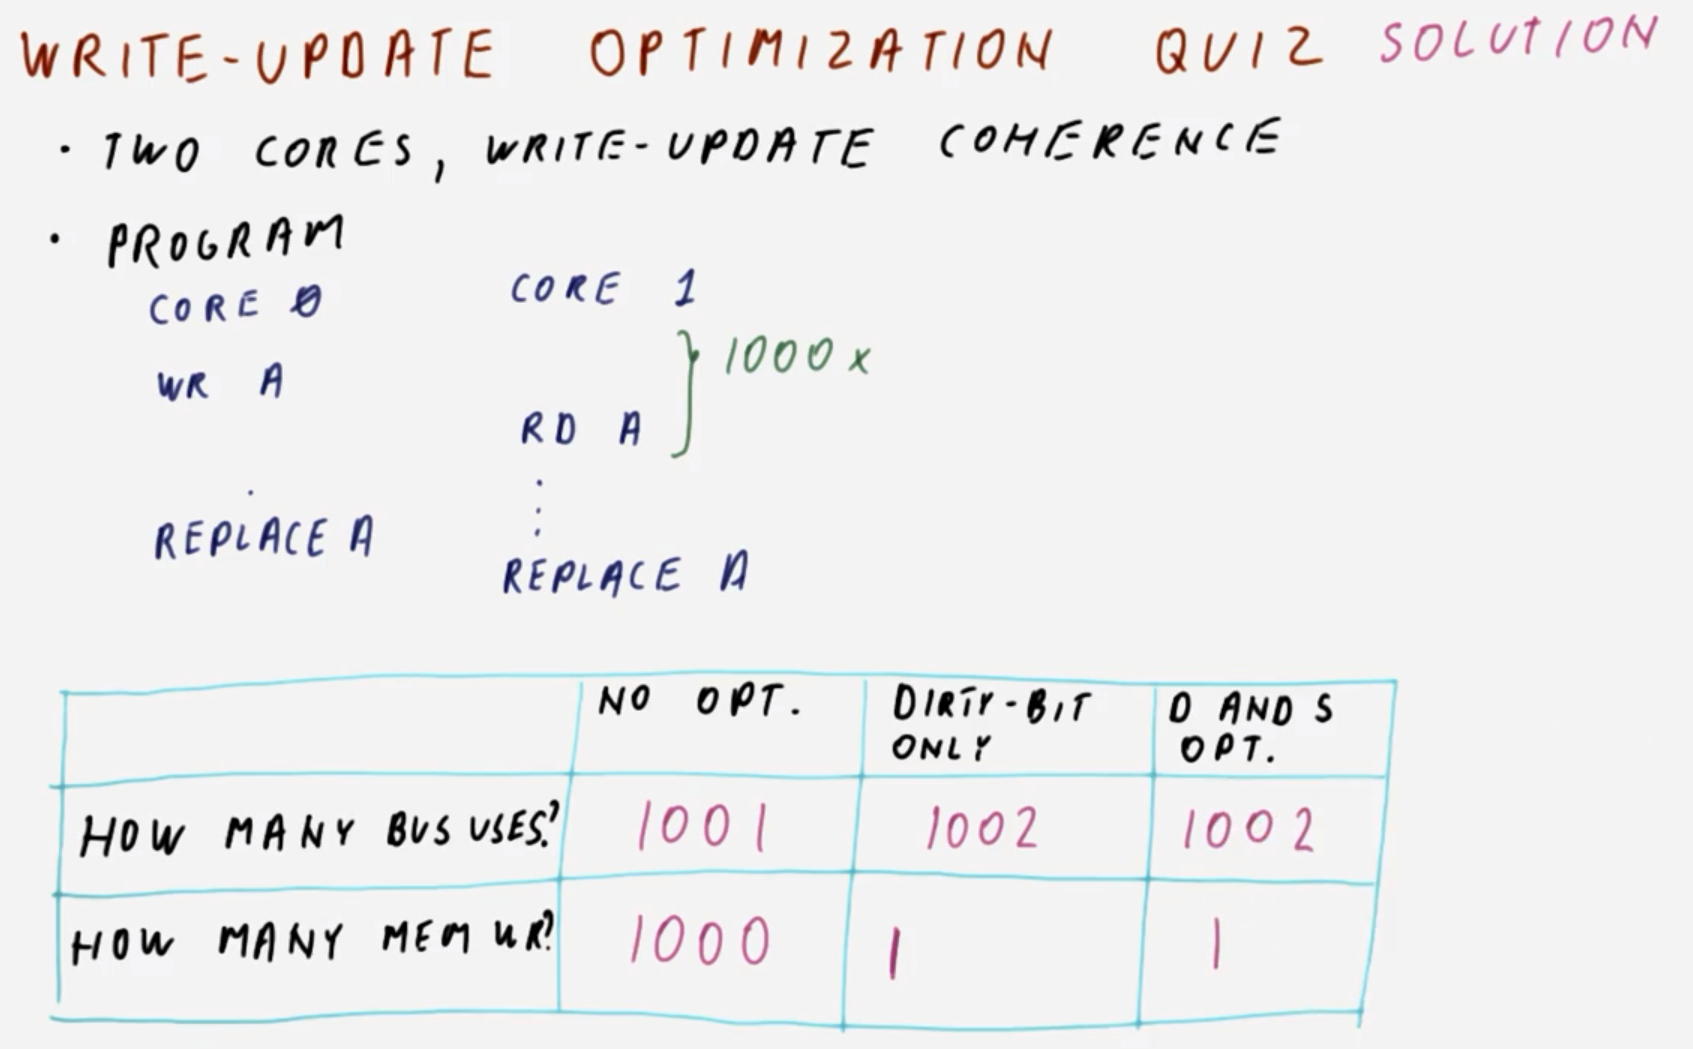 WRITE-UPDATE OPTIMIZATION QUIZ SOLUTION
· TWO CORES, WRITE-UPDATE COHERENCE
· PROGRAM
CORE 0 CORE 1
WR A 1000x
RD A
REPLACE A
REPLACE A
NO OPT. DIRTY-BIT ONLY D AND S OPT.
HOW MANY BUS USES? 1001 1002 1002
HOW MANY MEM WR? 1000 1 1